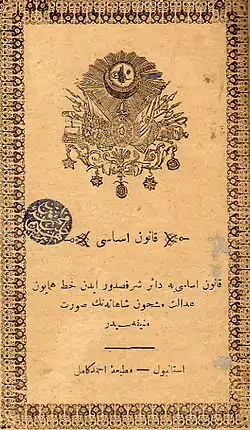 قانون اساسى
قانون اساسى يه دائر شرفصدور ايدن خط همايون
عدالت مشحون شاهانه نك صورت
منيفه سيدر
استانبول — مطبعهٔ احمد كامل